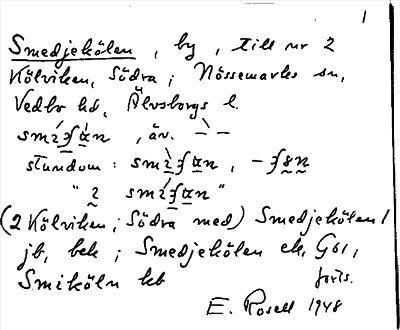 1
Smedjekölen, by, till nr 2
Kölviken, Södra; Nössemarks sn,
Vedbo hd, Älvsborgs l.
, äv.
stundom:
"2
(2 Kölviken, Södra med) Smedjekölen/
jb, bek; Smedjekölen ek, G61,
Smiköln kb forts.
E. Rosell 1948